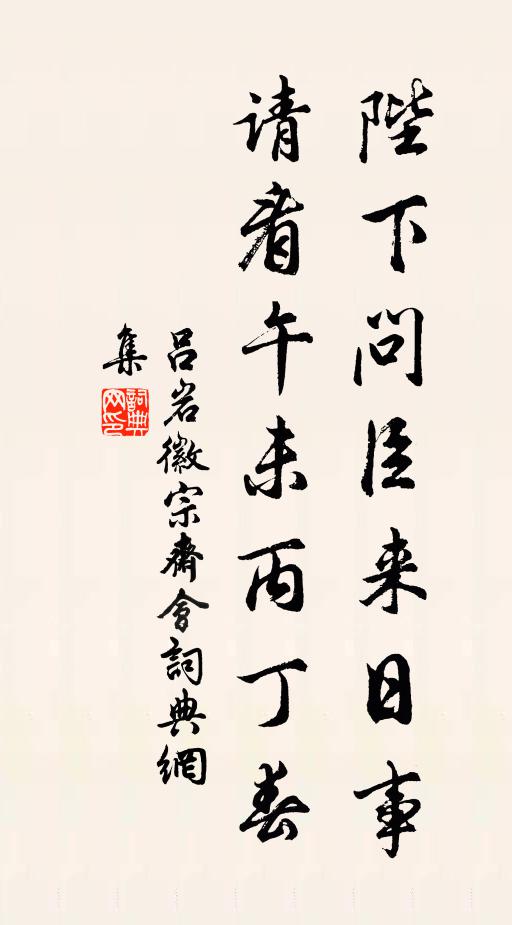 陛下问臣来日事
请看午未丙丁春
吕岩徽宗齋會詞典網
集
詞典网印